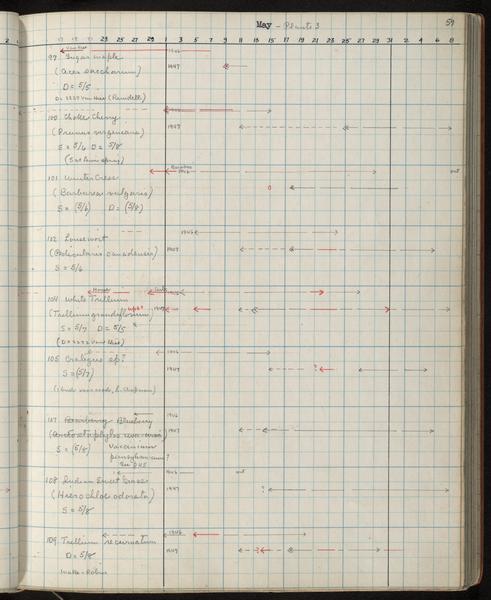 May - Plants 3
59
23 25 27 29 1 3 5 7 9 11 13 15 17 19 21 23 25 27 29 31 2 4 6 8
99 Sugar maple 1946
(Acer saccharum) 1947
D = 5/5
100 Choke Cherry 1946
(Prunus virginiana) 1947
S = 5/6 D = 5/8
101 Winter Cress 1946
(Barbarea vulgaris)
S = (5/6) D = (5/8)
out
102 Lousewort 1946
(Pedicularis canadensis) 1947
S = 5/6
104 White Trillium
(Trillium grandiflorum) 1947
S = 5/7 D = 5/5
105 Crataegus sp? 1946
S = (5/7) 1947
107 Bearberry Blueberry 1946
(Arctostaphylos uva-ursi) 1947
S = (5/8) Vaccinium
pensylvanicum?
See D45
1946 out
108 Indian Sweet Grass
(Hierochloe odorata) 1947
S = 5/8
109 Trillium recurvatum 1946
D = 5/8 1947
Wake-Robin